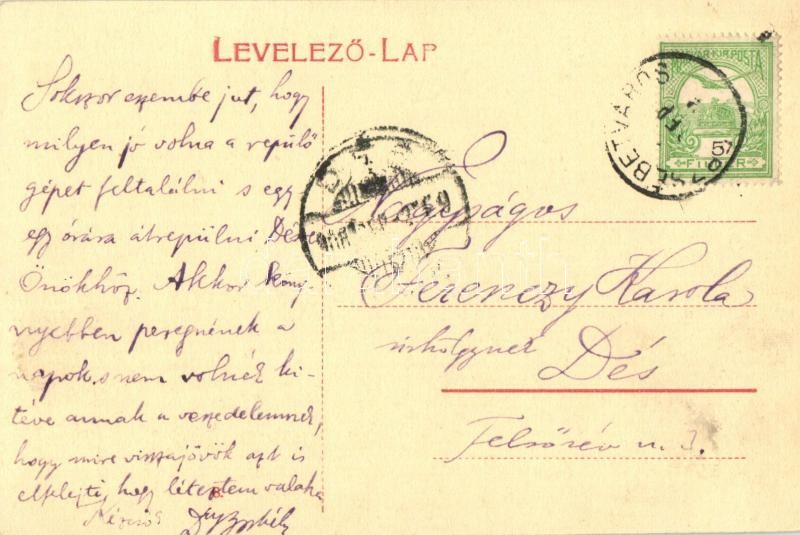 LEVELEZŐ-LAP
Sokszor eszembe jut, hogy
milyen jó volna a repülő
gépet feltalálni s egy
egy órára átrepülni Désre
Önökhöz. Akkor köny-
nyebben peregnének a
napok s nem volnék ki-
téve annak a veszedelemnek,
hogy mire visszajövök azt is
elfelejti, hogy léteztem valaha
Nagyságos
Ferenczy Karola
úrhölgynek
Dés
Felsőrév u. 3.
MAGYAR KIR. POSTA
5
FILLÉR
ERZSÉBETVÁROS